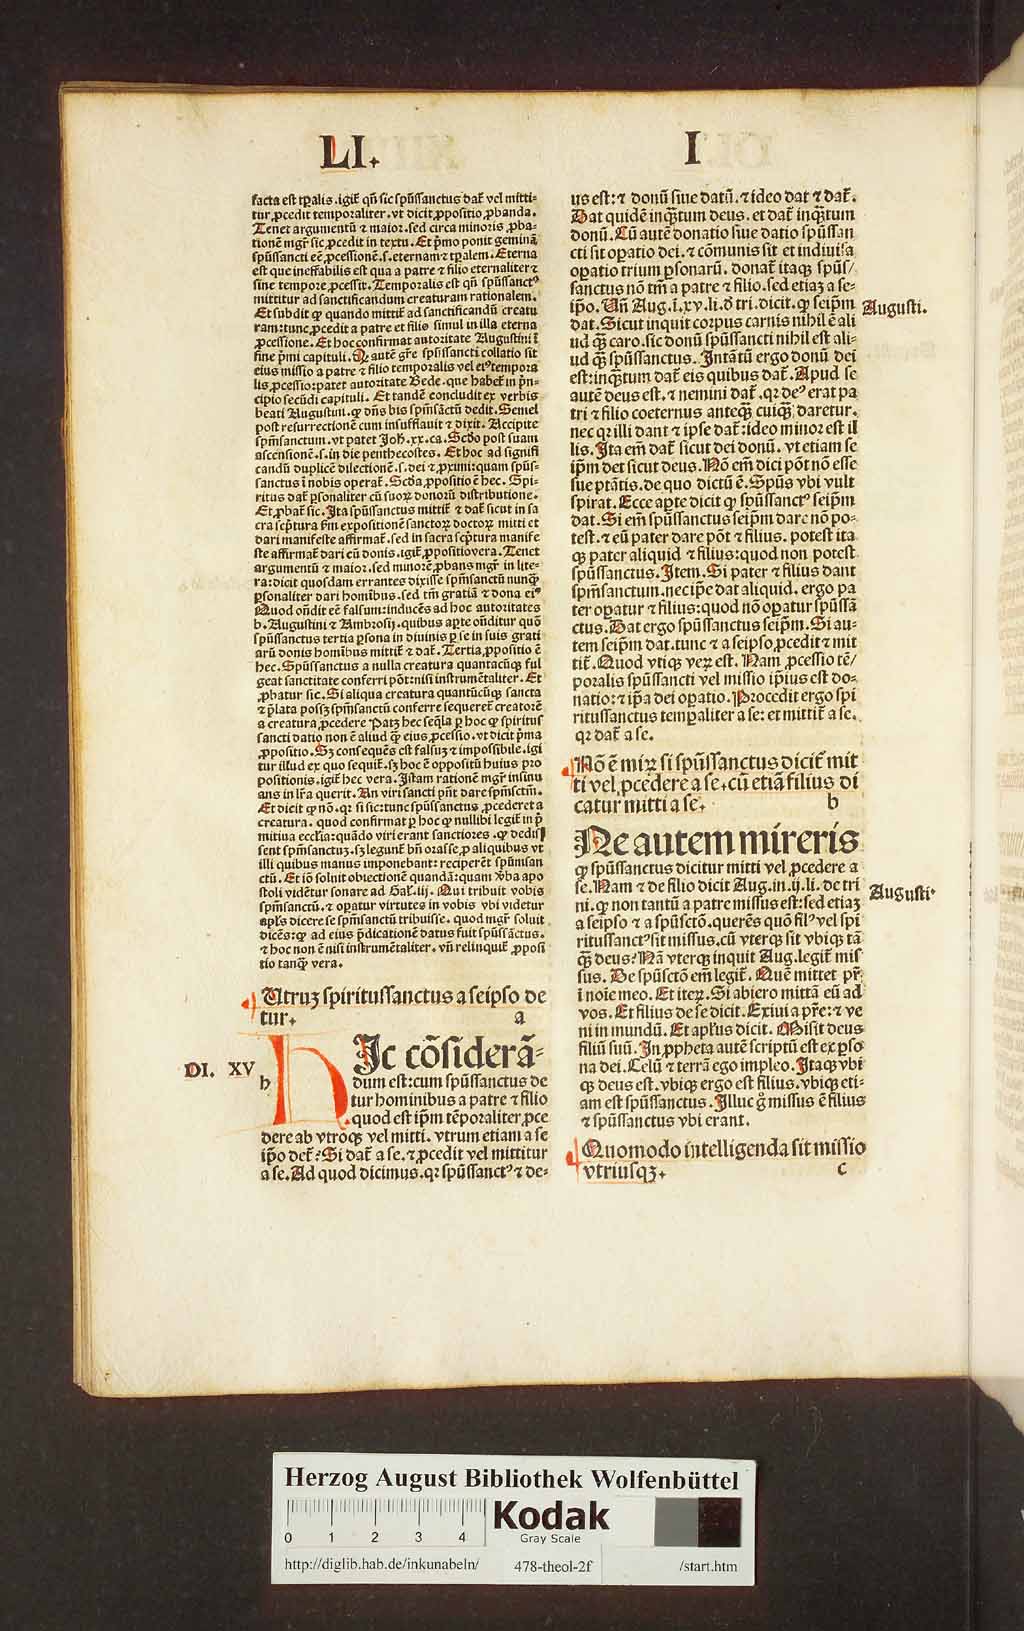 LI.
I
facta est tꝑalis. igit̃ qñ sic spũssanctus dat̃ vel mitti-
tur, ꝓcedit temporaliter. vt dicit ꝓpositio ꝓbanda.
Tenet argumentũ ⁊ maior. sed circa minoris ꝓba-
tionẽ mgr̃ sic ꝓcedit in textu. Et pͥmo ponit geminã
spũssancti eẽ ꝓcessionẽ. s. eternam ⁊ tꝑalem. Eterna
est que ineffabilis est qua a patre ⁊ filio eternaliter ⁊
sine tempore ꝓcessit. Temporalis est qñ spũssanctꝰ
mittitur ad sanctificandum creaturam rationalem.
Et subdit ꝙ quando mittit̃ ad sanctificandũ creatu
ram: tunc ꝓcedit a patre et filio simul in illa eterna
ꝓcessione. Et hoc confirmat autoritate Augustini ĩ
fine pͥmi capituli. Ꝙ autẽ gr̃e spũssancti collatio sit
eius missio a patre ⁊ filio temporalis vel eiꝰ tempora
lis ꝓcessio: patet autoritate Bede. que habet̃ in pͥn-
cipio secũdi capituli. Et tandẽ concludit ex verbis
beati Augustini. ꝙ dñs bis spm̃sãctũ dedit. Semel
post resurrectionẽ cum insufflauit ⁊ dixit. Accipite
spm̃sanctum. vt patet Joh̃. xx. ca. Scḋo post suam
ascensionẽ. s. in die penthecostes. Et hoc ad signifi
candũ duplicẽ dilectionẽ. s. dei ⁊ ꝓximi: quam spũs-
sanctus ĩ nobis operat̃. Scḋa ꝓpositio ẽ hec. Spi-
ritus dat̃ ꝑsonaliter cũ suoꝝ donorũ distributione.
Et ꝓbat̃ sic. Ita spũssanctus mittit̃ ⁊ dat̃ sicut in sa
cra scp̃tura fm̃ expositionẽ sanctoꝝ doctoꝝ mitti et
dari manifeste affirmat̃. sed in sacra scp̃tura manife
ste affirmat̃ dari cũ donis. igit̃ ꝓpositio vera. Tenet
argumentũ ⁊ maior. sed minorẽ ꝓbans mgr̃ in lite-
ra: dicit quosdam errantes dixisse spm̃sanctũ nunꝗ̃
ꝑsonaliter dari homĩbus. sed tm̃ gratiã ⁊ dona eiꝰ
Quod oñdit eẽ falsum: inducẽs ad hoc autoritates
b. Augustini ⁊ Ambrosij. quibus aꝑte oñditur quõ
spũssanctus tertia ꝑsona in diuinis ꝑ se in suis grati
arũ donis homĩbus mittit̃ ⁊ dat̃. Tertia ꝓpositio ẽ
hec. Spũssanctus a nulla creatura quantacũꝗ ful
geat sanctitate conferri põt: nisi instrumẽtaliter. Et
ꝓbatur sic. Si aliqua creatura quantũcũꝗ sancta
et p̃lata possꝫ spm̃sanctũ conferre sequeret̃ creatorẽ
a creatura ꝓcedere Patꝫ hec seq̃la ꝑ hoc ꝙ spiritus
sancti datio non ẽ aliud ꝗ̃ eius ꝓcessio. vt dicit pͥma
ꝓpositio. Sꝫ consequẽs est falsuꝫ ⁊ impossibile. igi
tur illud ex quo sequit̃. sꝫ hoc ẽ oppositũ huius pro
positionis. igit̃ hec vera. Istam rationẽ mgr̃ insinu
ans in lr̃a querit. An viri sancti pñt dare spm̃sctm̃.
Et dicit ꝙ nõ. qꝛ si sic: tunc spũssanctus ꝓcederet a
creatura. quod confirmat ꝑ hoc ꝙ nullibi legit̃ in pͥ
mitiua eccl̃ia: quãdo viri erant sanctiores. ꝙ dedis
sent spm̃sanctuꝫ. sꝫ legunt̃ bñ orasse ꝓ aliquibus vt
illi quibus manus imponebant: reciperẽt spũmsan
ctũ. Et iõ soluit obiectionẽ quandã: quam vͣba apo
stoli vidẽtur sonare ad Gal̃. iij. Qui tribuit vobis
spm̃sanctũ. ⁊ oꝑatur virtutes in vobis vbi videtur
apl̃s dicere se spm̃sanctũ tribuisse. quod mgr̃ soluit
dicẽs: ꝙ ad eius p̃dicationẽ datus fuit spũssãctus.
⁊ hoc non ẽ nisi instrumẽtaliter. vñ relinquit̃ ꝓposi
tio tanꝗ̃ vera.
Utruꝫ spiritussanctus a seipso de
tur. a
DI. XV
h
Ic cõsiderã-
dum est: cum spũssanctus de
tur hominibus a patre ⁊ filio
quod est ip̃m tẽporaliter ꝓce
dere ab vtroꝗ vel mitti. vtrum etiam a se
ip̃o det̃? Si dat̃ a se. ⁊ ꝓcedit vel mittitur
a se. Ad quod dicimus. qꝛ spũssanctꝰ ⁊ de-
us est: ⁊ donũ siue datũ. ⁊ ideo dat ⁊ dat̃.
Dat quidẽ inꝗ̃tum deus. et dat̃ inꝗ̃tum
donũ. Cũ autẽ donatio siue datio spũssan
cti sit oꝑatio dei. ⁊ cõmunis sit et indiuisa
oꝑatio trium ꝑsonarũ. donat̃ itaꝗ spũs/
sanctus nõ tm̃ a patre ⁊ filio. sed etiaꝫ a se-
ip̃o. Vñ Aug. ĩ. xv. li. ð tri. dicit. ꝙ seip̃m
dat. Sicut inquit corpus carnis nihil ẽ ali
ud ꝗ̃ caro. sic donũ spũssancti nihil est ali-
ud ꝗ̃ spũssanctus. Intãtũ ergo donũ dei
est: inꝗ̃tum dat̃ eis quibus dat̃. Apud se
autẽ deus est. ⁊ nemini dat̃. qꝛ deꝰ erat pa
tri ⁊ filio coeternus anteꝗ̃ cuiꝗ̃ daretur.
nec qꝛ illi dant ⁊ ipse dat̃: ideo minor est il
lis. Ita em̃ dat̃ sicut dei donũ. vt etiam se
ip̃m det sicut deus. Nõ em̃ dici põt nõ esse
sue ptãtis. de quo dictũ ẽ. Spũs vbi vult
spirat. Ecce aꝑte dicit ꝙ spũssanctꝰ seip̃m
dat. Si em̃ spũssanctus seip̃m dare nõ po-
test. ⁊ eũ pater dare põt ⁊ filius. potest ita
ꝗ pater aliquid ⁊ filius: quod non potest
spũssanctus. Item. Si pater ⁊ filius dant
spm̃sanctum. nec ip̃e dat aliquid. ergo pa
ter oꝑatur ⁊ filius: quod nõ oꝑatur spũssã
ctus. Dat ergo spũssanctus seip̃m. Si au-
tem seip̃m dat. tunc ⁊ a seipso ꝓcedit ⁊ mit
tit̃. Quod vtiꝗ veꝝ est. Nam ꝓcessio tẽ/
poralis spũssancti vel missio ip̃ius est do-
natio: ⁊ ip̃a dei oꝑatio. Procedit ergo spi
ritussanctus temꝑaliter a se: et mittit̃ a se.
qꝛ dat̃ a se.
Augusti.
Nõ ẽ miꝝ si spũssanctus dicit̃ mit
ti vel ꝓcedere a se. cũ etiã filius di
catur mitti a se. b
Ne autem mireris
ꝙ spũssanctus dicitur mitti vel ꝓcedere a
se. Nam ⁊ de filio dicit Aug. in. ij. li. de tri
ni. ꝙ non tantũ a patre missus est: sed etiaꝫ
a seipso ⁊ a spũsctõ. querẽs quõ filꝰ vel spi
ritussanctꝰ sit missus. cũ vterꝗ sit vbiꝗ tã
ꝗ̃ deus? Nã vterꝗ inquit Aug. legit̃ mis
sus. De spũsctõ em̃ legit̃. Quẽ mittet pr̃.
ĩ noĩe meo. Et iteꝝ. Si abiero mittã eũ ad
vos. Et filius de se dicit. Exiui a pr̃e: ⁊ ve
ni in mundũ. Et apl̃us dicit. Misit deus
filiũ suũ. In ꝓpheta autẽ scriptũ est ex ꝑso
na dei. Celũ ⁊ terrã ego impleo. Itaꝗ vbi
ꝗ deus est. vbiꝗ ergo est filius. vbiꝗ eti-
am est spũssanctus. Illuc g̃ missus ẽ filius
⁊ spũssanctus vbi erant.
Augusti.
Quomodo intelligenda sit missio
vtriusꝗ. c
Herzog August Bibliothek Wolfenbüttel
0 1 2 3 4
Kodak
Gray Scale
http://diglib.hab.de/inkunabeln/ 478-theol-2f /start.htm